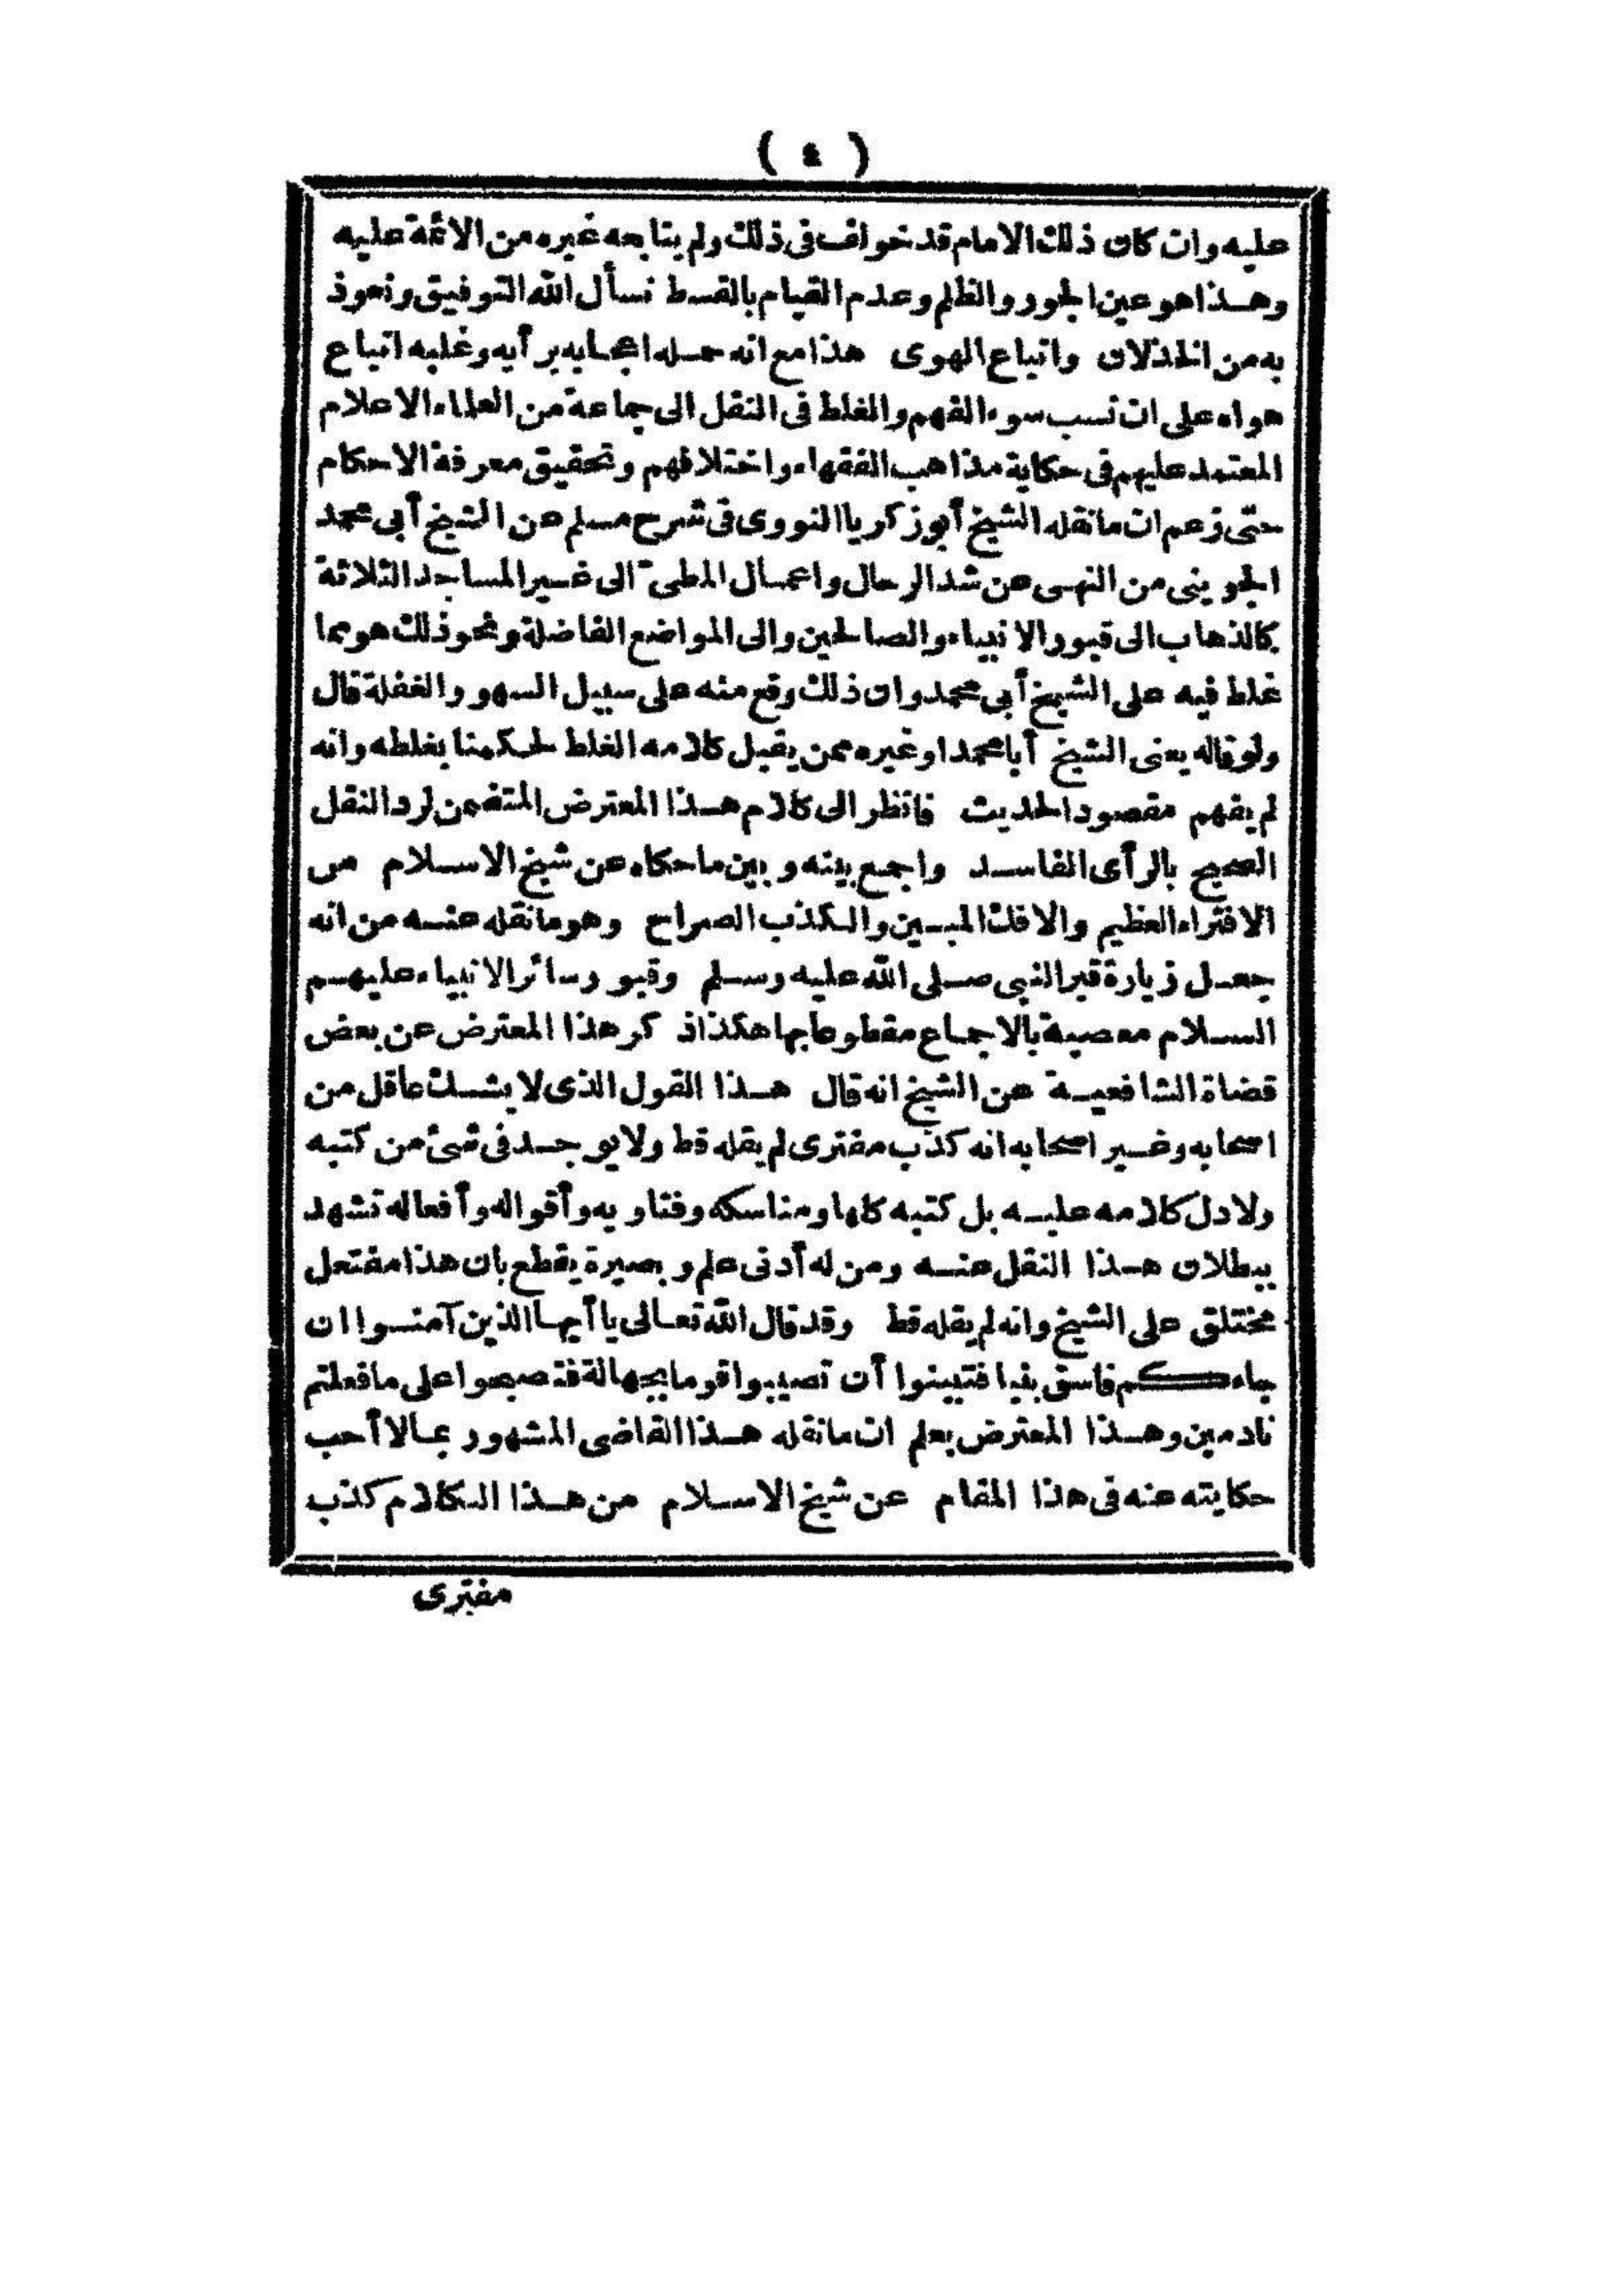 ( ٤ )
عليه وان كان ذلك الامام قد خولف فى ذلك ولم يتابعه غيره من الائمة عليه
وهذا هو عين الجور والظلم وعدم القيام بالقسط نسأل الله التوفيق ونعوذ
به من الخذلان واتباع الهوى هذا مع انه حمله اعجابه برأيه وغلبه اتباع
هواه على ان نسب سوء الفهم والغلط فى النقل الى جماعة من العلماء الاعلام
المعتمد عليهم فى حكاية مذاهب الفقهاء واختلافهم وتحقيق معرفة الاحكام
حتى زعم ان ما نقله الشيخ أبو زكريا النووى فى شرح مسلم عن الشيخ أبى محمد
الجوينى من النهى عن شد الرحال واعمال المطى الى غير المساجد الثلاثة
كالذهاب الى قبور الانبياء والصالحين والى المواضع الفاضلة ونحو ذلك هو مما
غلط فيه على الشيخ أبى محمد وان ذلك وقع منه على سبيل السهو والغفلة قال
ولو قاله يعنى الشيخ أبا محمد او غيره ممن يقبل كلامه الغلط لحكمنا بغلطه وانه
لم يفهم مقصود الحديث فانظر الى كلام هذا المعترض المتضمن لرد النقل
الصحيح بالرأى الفاسد واجمع بينه وبين ما حكاه عن شيخ الاسلام من
الافتراء العظيم والافك المبين والكذب الصراح وهو ما نقله عنه من انه
جعل زيارة قبر النبى صلى الله عليه وسلم وقبور سائر الانبياء عليهم
السلام معصية بالاجماع مقطوعا بها هكذا ذكر هذا المعترض عن بعض
قضاة الشافعية عن الشيخ انه قال هذا القول الذى لا يشك عاقل من
اصحابه وغير اصحابه انه كذب مفترى لم يقله قط ولا يوجد فى شئ من كتبه
ولا دل كلامه عليه بل كتبه كلها ومناسكه وفتاويه وأقواله وأفعاله تشهد
ببطلان هذا النقل عنه ومن له أدنى علم وبصيرة يقطع بان هذا مفتعل
مختلق على الشيخ وانه لم يقله قط وقد قال الله تعالى يا أيها الذين آمنوا ان
جاءكم فاسق بنبا فتبينوا أن تصيبوا قوما بجهالة فتصبحوا على ما فعلتم
نادمين وهذا المعترض يعلم ان ما نقله هذا القاضى المشهور بما لا أحب
حكايته عنه فى هذا المقام عن شيخ الاسلام من هذا الكلام كذب
مفترى